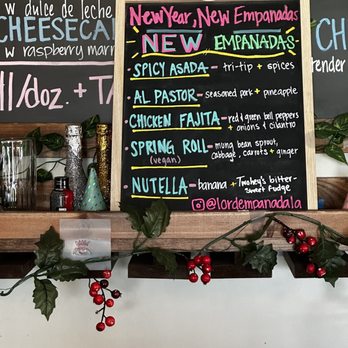 w dulce de leche
CHEESECA
w raspberry marm
11/doz. + TA
New Year, New Empanadas
NEW EMPANADAS
SPICY ASADA - tri-tip + spices
AL PASTOR - seasoned pork + pineapple
CHICKEN FAJITA - red & green bell peppers
+ onions & cilantro
SPRING ROLL - mung bean sprout,
(vegan) cabbage, carrots + ginger
NUTELLA - banana + Toohey's bitter-
sweet fudge
@lordempanadala
CHE
render